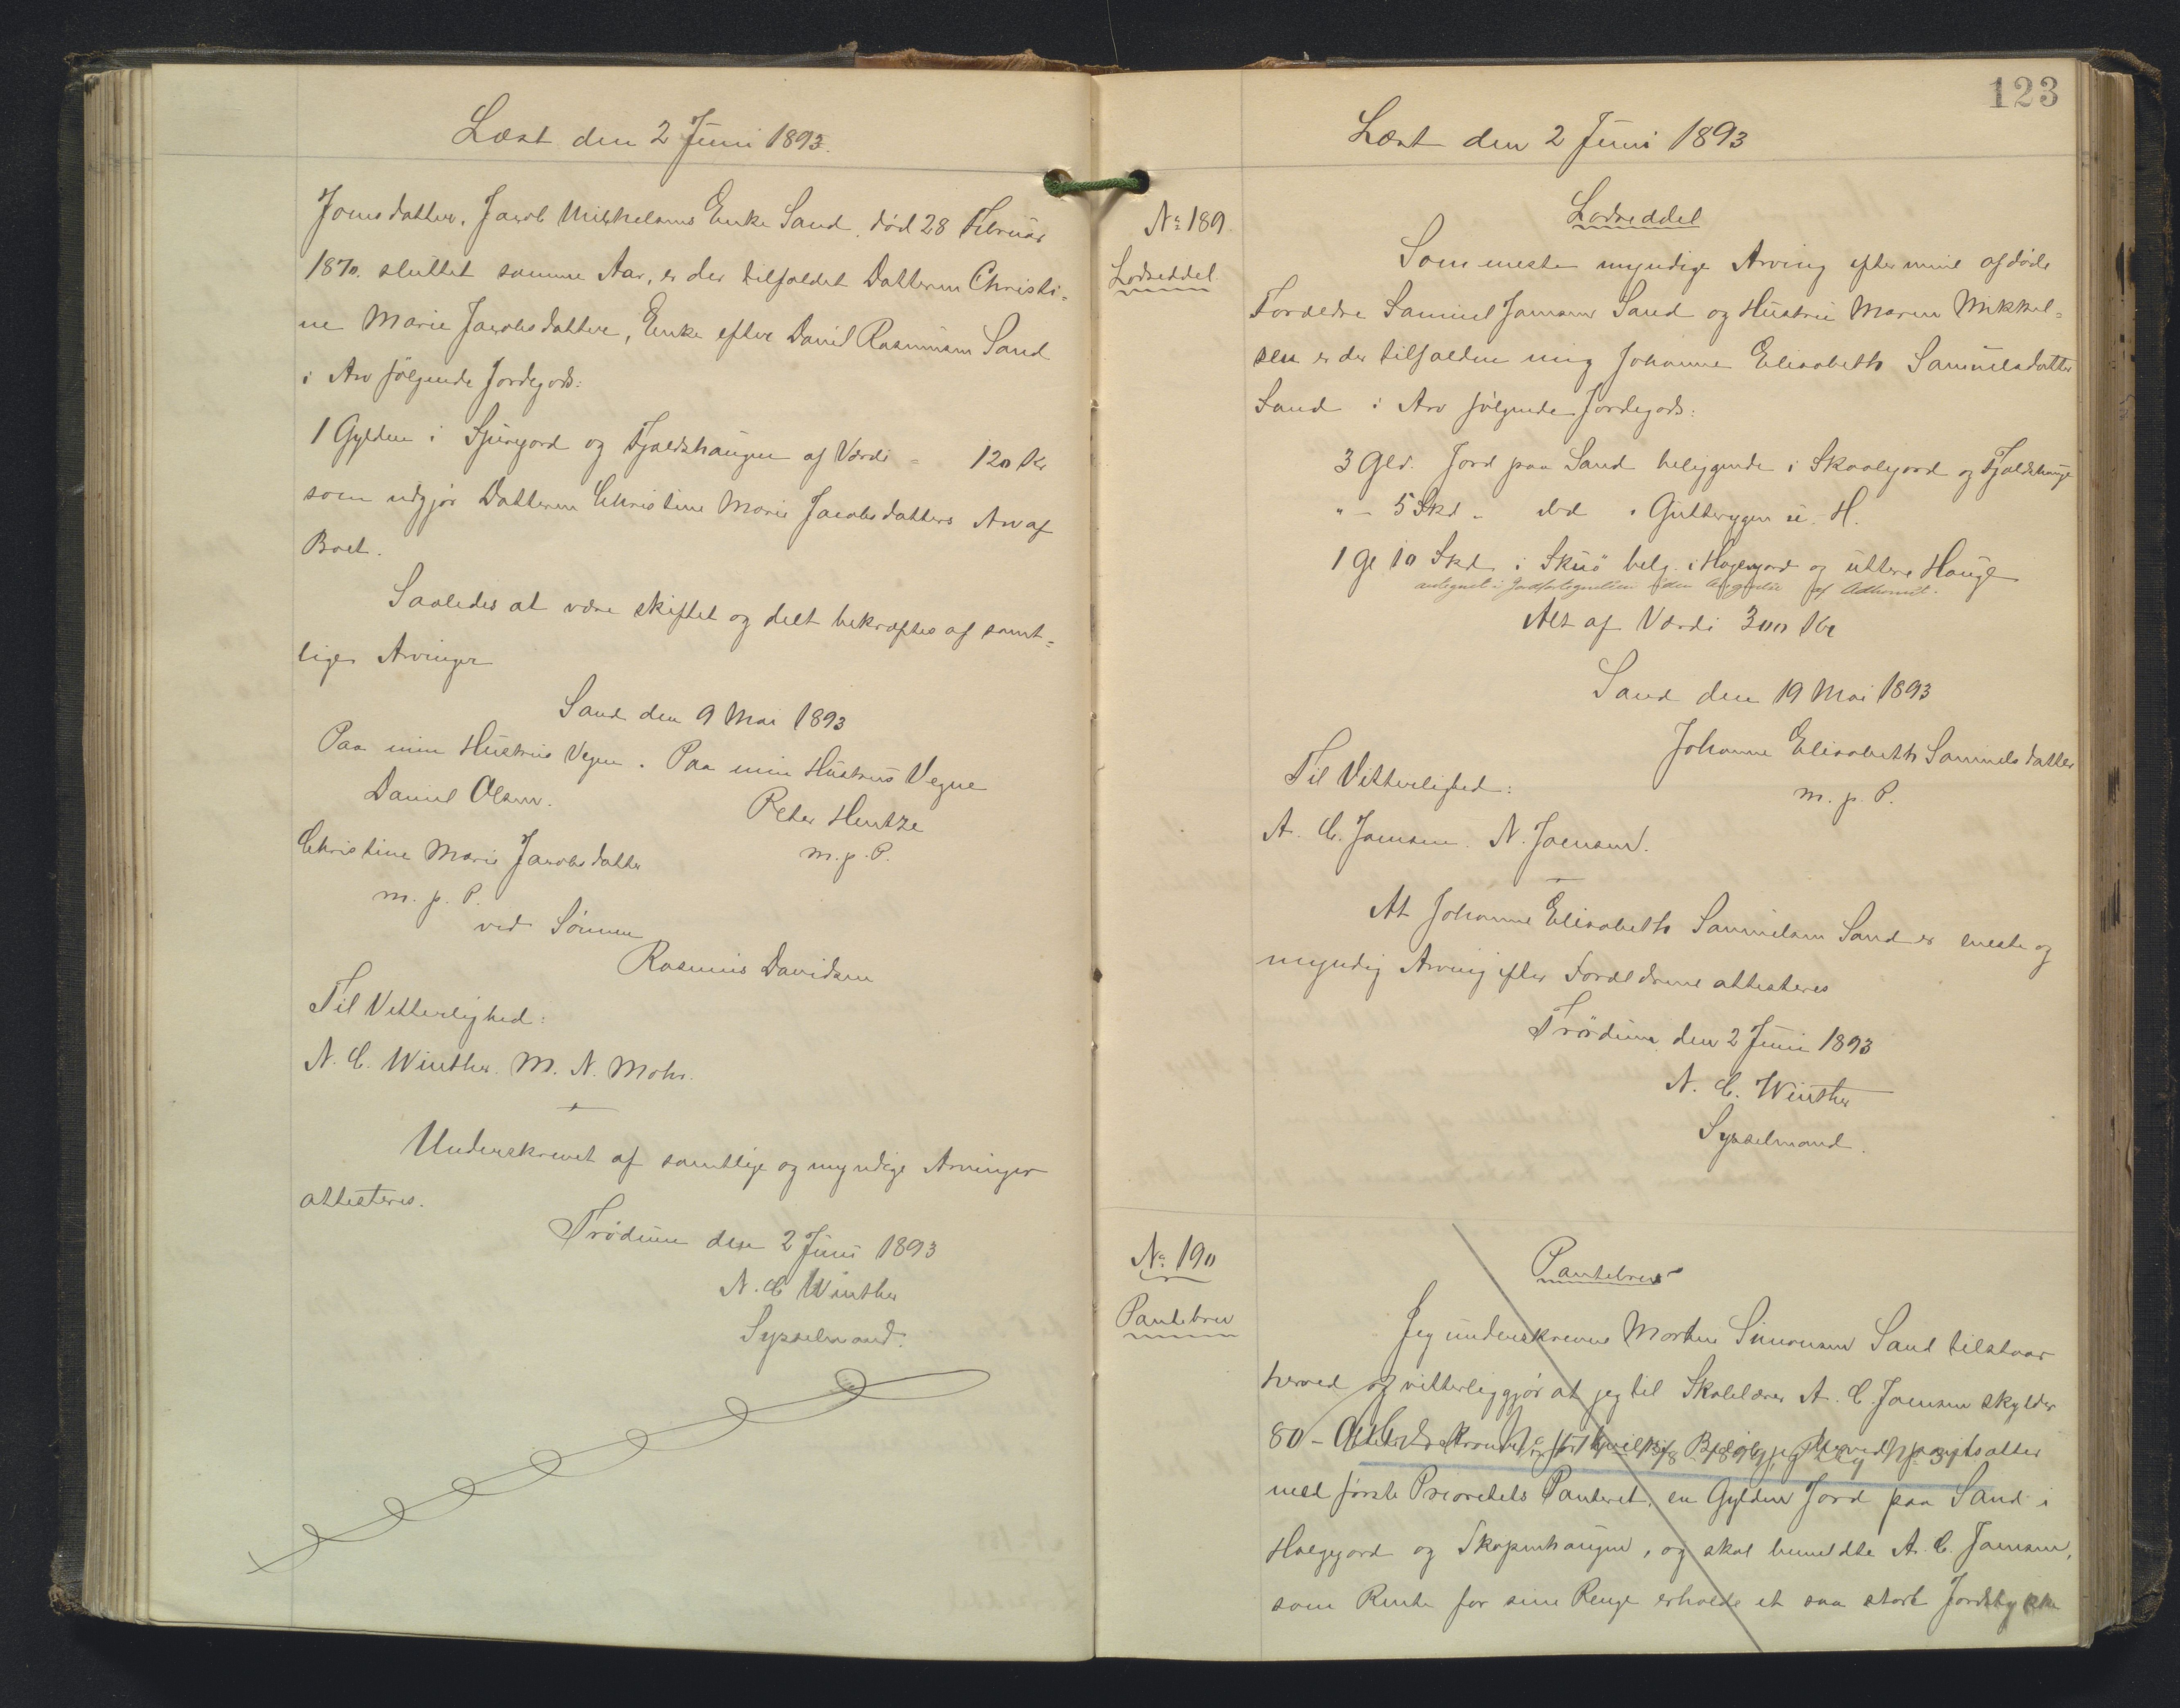 Læst den 2 Juni 1893.
Joensdatter, Jacob Mikkelsens Enke Sand, død 28 Februar
1870. sluttet samme Aar, er der tilfaldet Datteren Christi=
ne Marie Jacobsdatter, Enke efter David Rasmussen Sand
i Arv følgende Jordegods:
1 Gylden i og Fjaldshaugen af Værdi = 120 Kr
som udgjør Datteren Christine Marie Jacobsdatters Arv af
Boet.
Saaledes at være skiftet og delt bekræftes af samt=
lige Arvinger
Sand den 9 Mai 1893
Paa min Hustrus Vegne. Paa min Hustrus Vegne
Daniel Olsen. Peter Hentze
m. p. P.
Christine Marie Jacobsdatter
m. p. P.
ved Sønnen
Rasmus Davidsen
Til Vitterlighed:
N. C. Winther. M. N. Mohr.
Underskrevet af samtlige og myndige Arvinger
attesteres.
Trødum den 2 Juni 1893
N. C Winther
Sysselmand.
123
Læst den 2 Juni 1893
No 189.
Lodseddel
Lodseddel
Som eneste myndige Arving efter mine afdøde
Forældre Samuel Joensen Sand og Hustru Maren Mikkel=
sen er der tilfalden mig Johanne Elisabeth Samuelsdatter
Sand i Arv følgende Jordegods:
3 Gld. Jord paa Sand beliggende i Skaalegord og Fjaldshauge
" - 5 Skd - do i u. H.
1 Gl 10 Skd i Skuø belg. i Hagegord og uttere Hauge
antegnet i uden af Adkomst.
Alt af Værdi 300 Kr
Sand den 19 Mai 1893
Johanne Elisabeth Samuelsdatter
m. p. P.
Til Vitterlighed:
A. C. Joensen. N. Joensen.
At Johanne Elisabeth Samuelsen Sand er eneste og
myndig Arving efter Forældrene attesteres
Trødum den 2 Juni 1893
N. C. Winther
Sysselmand.
No 190
Pantebrev
Pantebrev
Jeg underskrevne Morten Simonsen Sand tilstaar
herved og vitterliggjør at jeg til Skolelærer A. C. Joensen skylder
80 -
med første Prioritets Panteret, en Gylden Jord paa Sand i
Hagegord og Skopenhaugen, og skal bemeldte A. C. Joensen,
som Rente for sine Penge erholde et saa stort Jordstykke